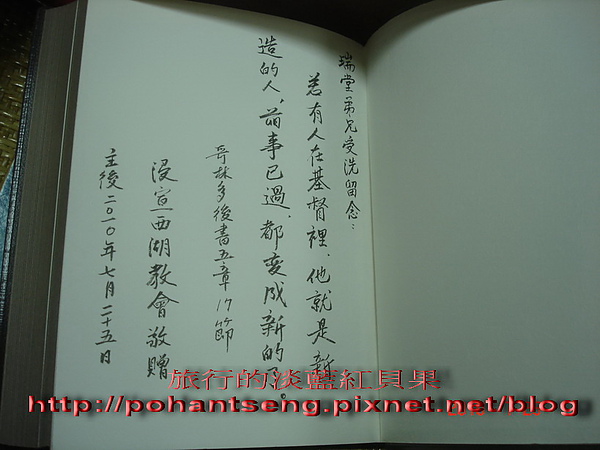 瑞堂弟兄受洗留念：
若有人在基督裡，他就是新
造的人，舊事已過，都變成新的了。
哥林多後書五章17節
浸宣西湖教會敬贈
主後二〇一〇年七月二十五日
旅行的淡藍紅貝果
http://pohantseng.pixnet.net/blog